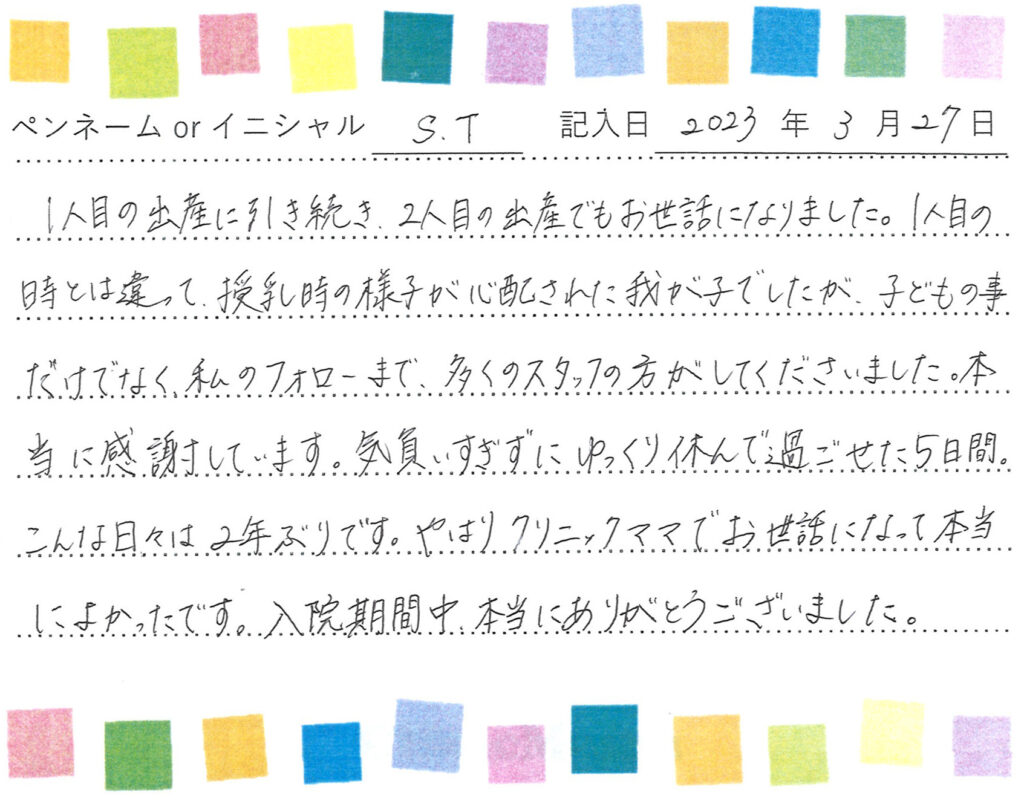 ペンネーム or イニシャル S.T 記入日 2023 年 3 月 27 日
1人目の出産に引き続き、2人目の出産でもお世話になりました。1人目の
時とは違って、授乳時の様子が心配された我が子でしたが、子どもの事
だけでなく、私のフォローまで、多くのスタッフの方がしてくださいました。本
当に感謝しています。気負いすぎずにゆっくり休んで過ごせた5日間。
こんな日々は2年ぶりです。やはりクリニックママでお世話になって本当
によかったです。入院期間中、本当にありがとうございました。